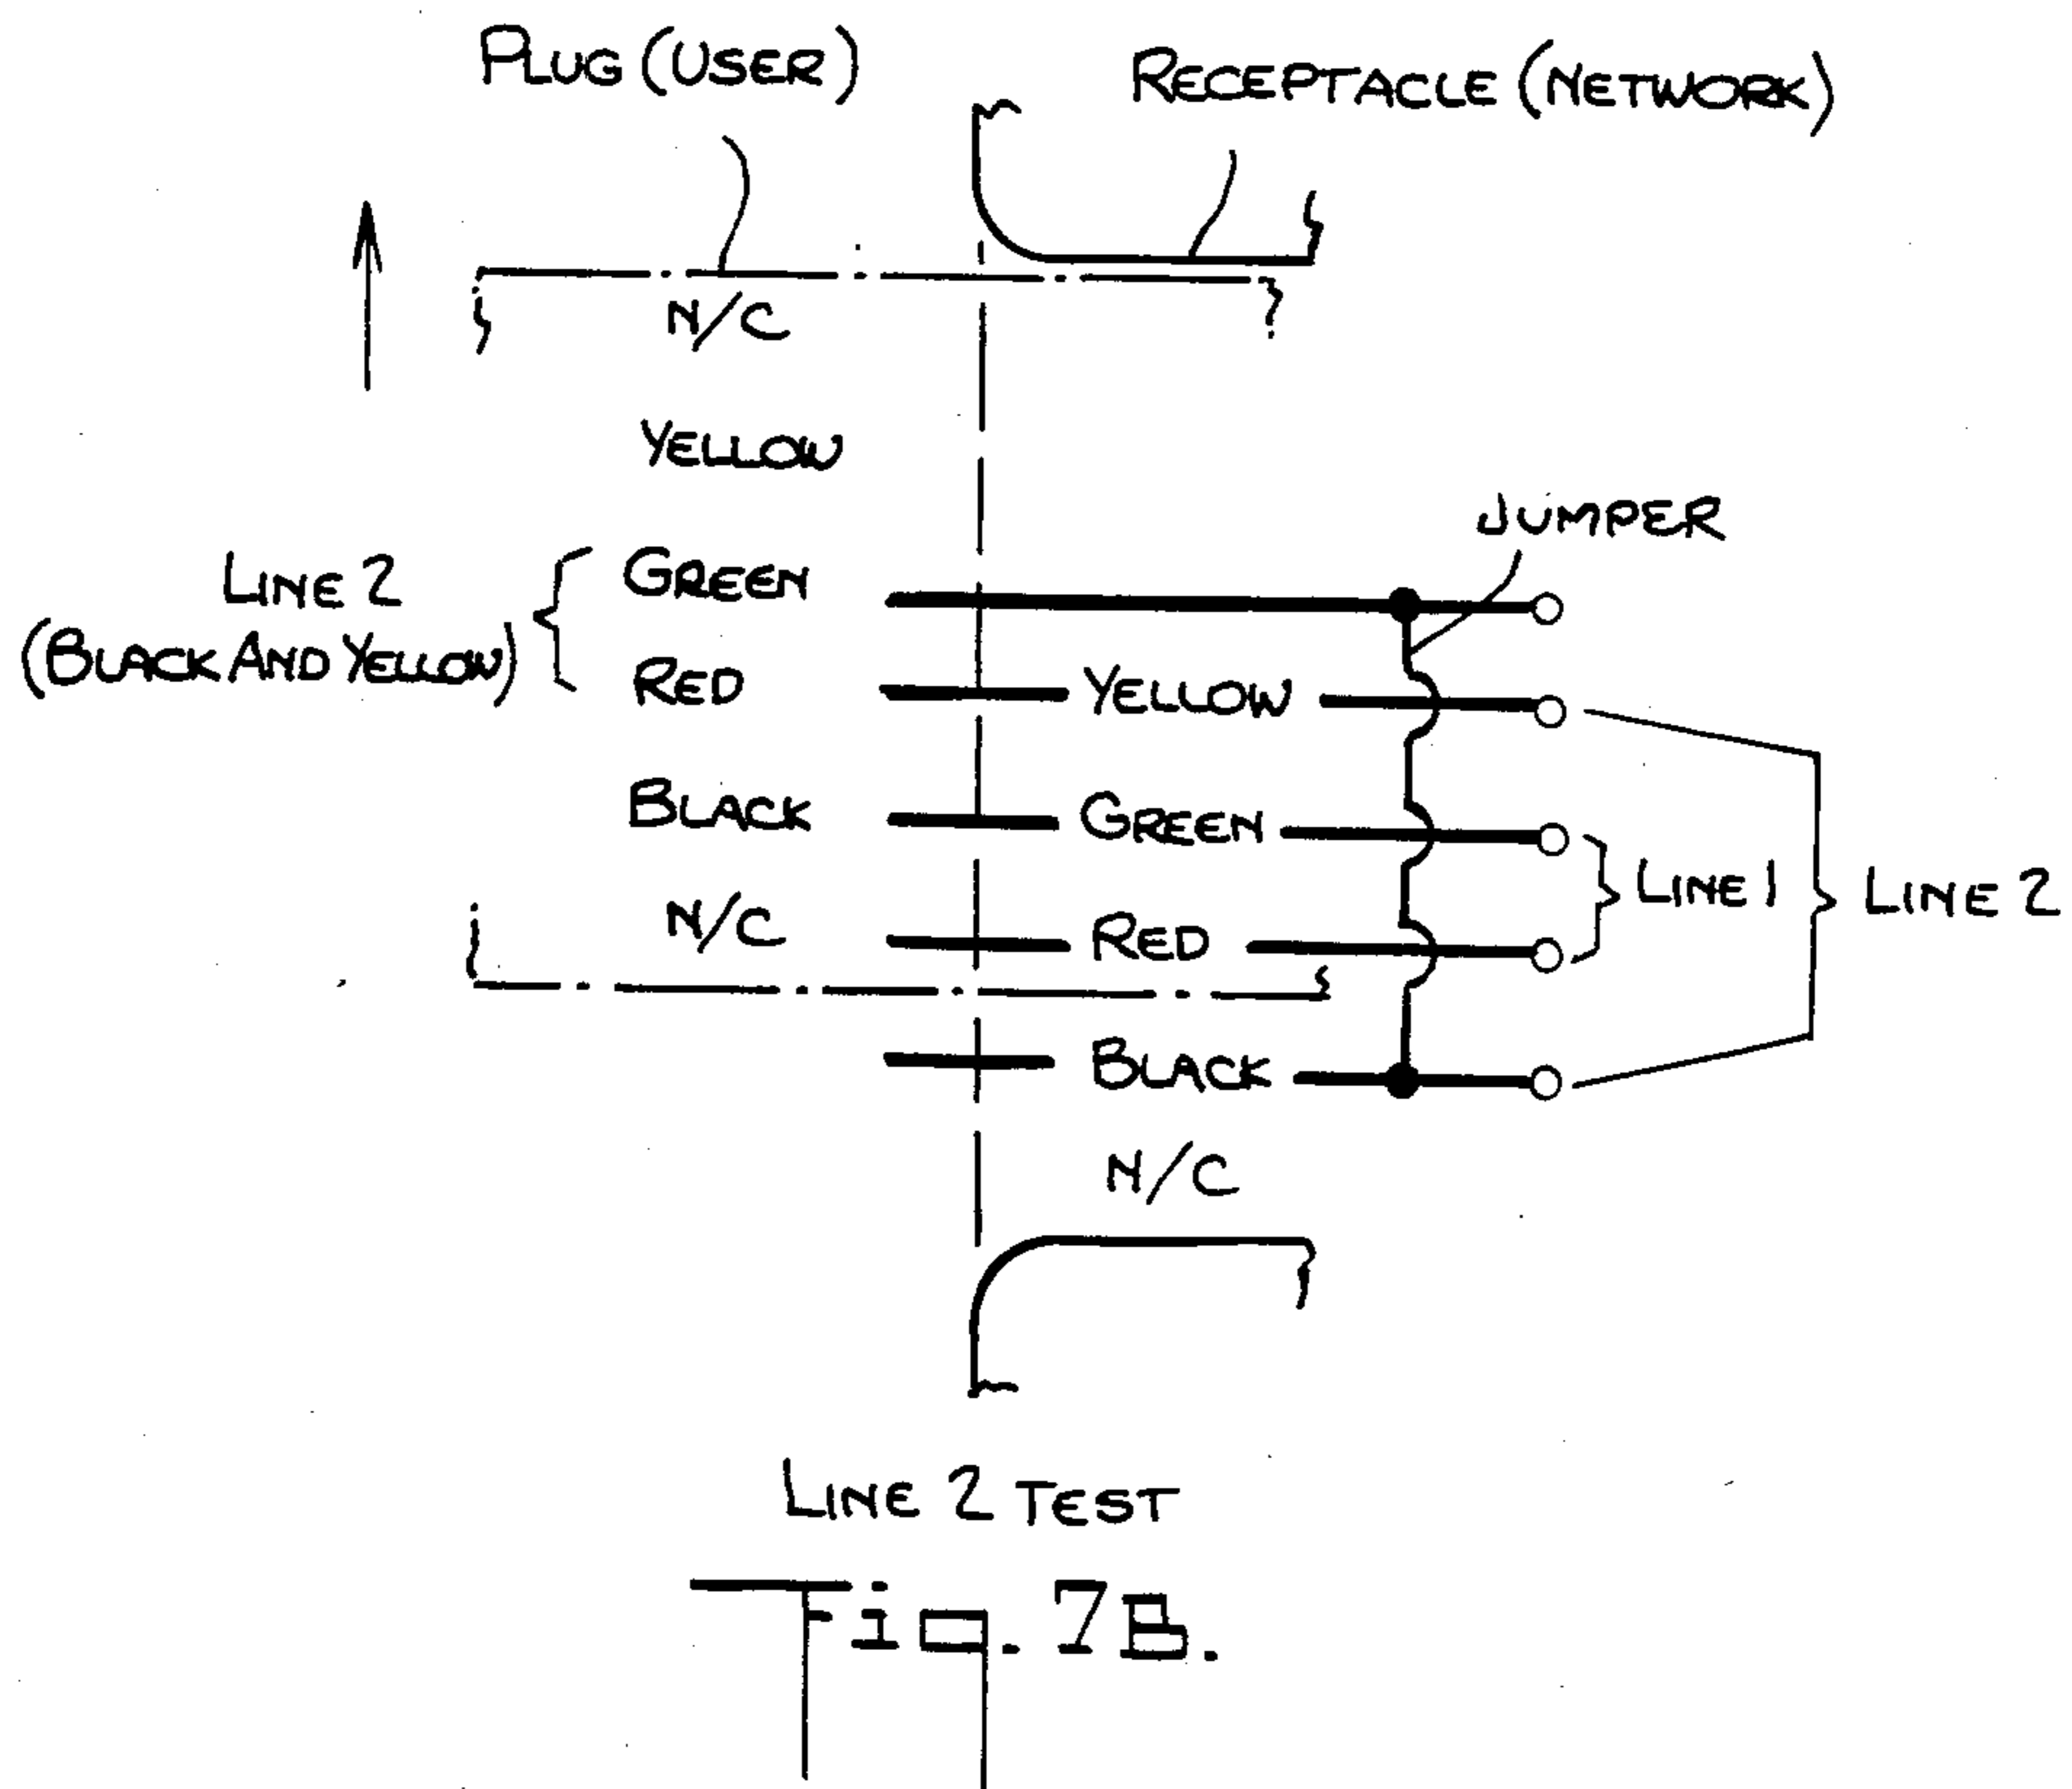 PLUG (USER)
RECEPTACLE (NETWORK)
N/C
YELLOW
JUMPER
LINE 2
(BLACK AND YELLOW)
GREEN
RED
YELLOW
BLACK
GREEN
LINE 1
LINE 2
N/C
RED
BLACK
N/C
LINE 2 TEST
Fig. 7B.